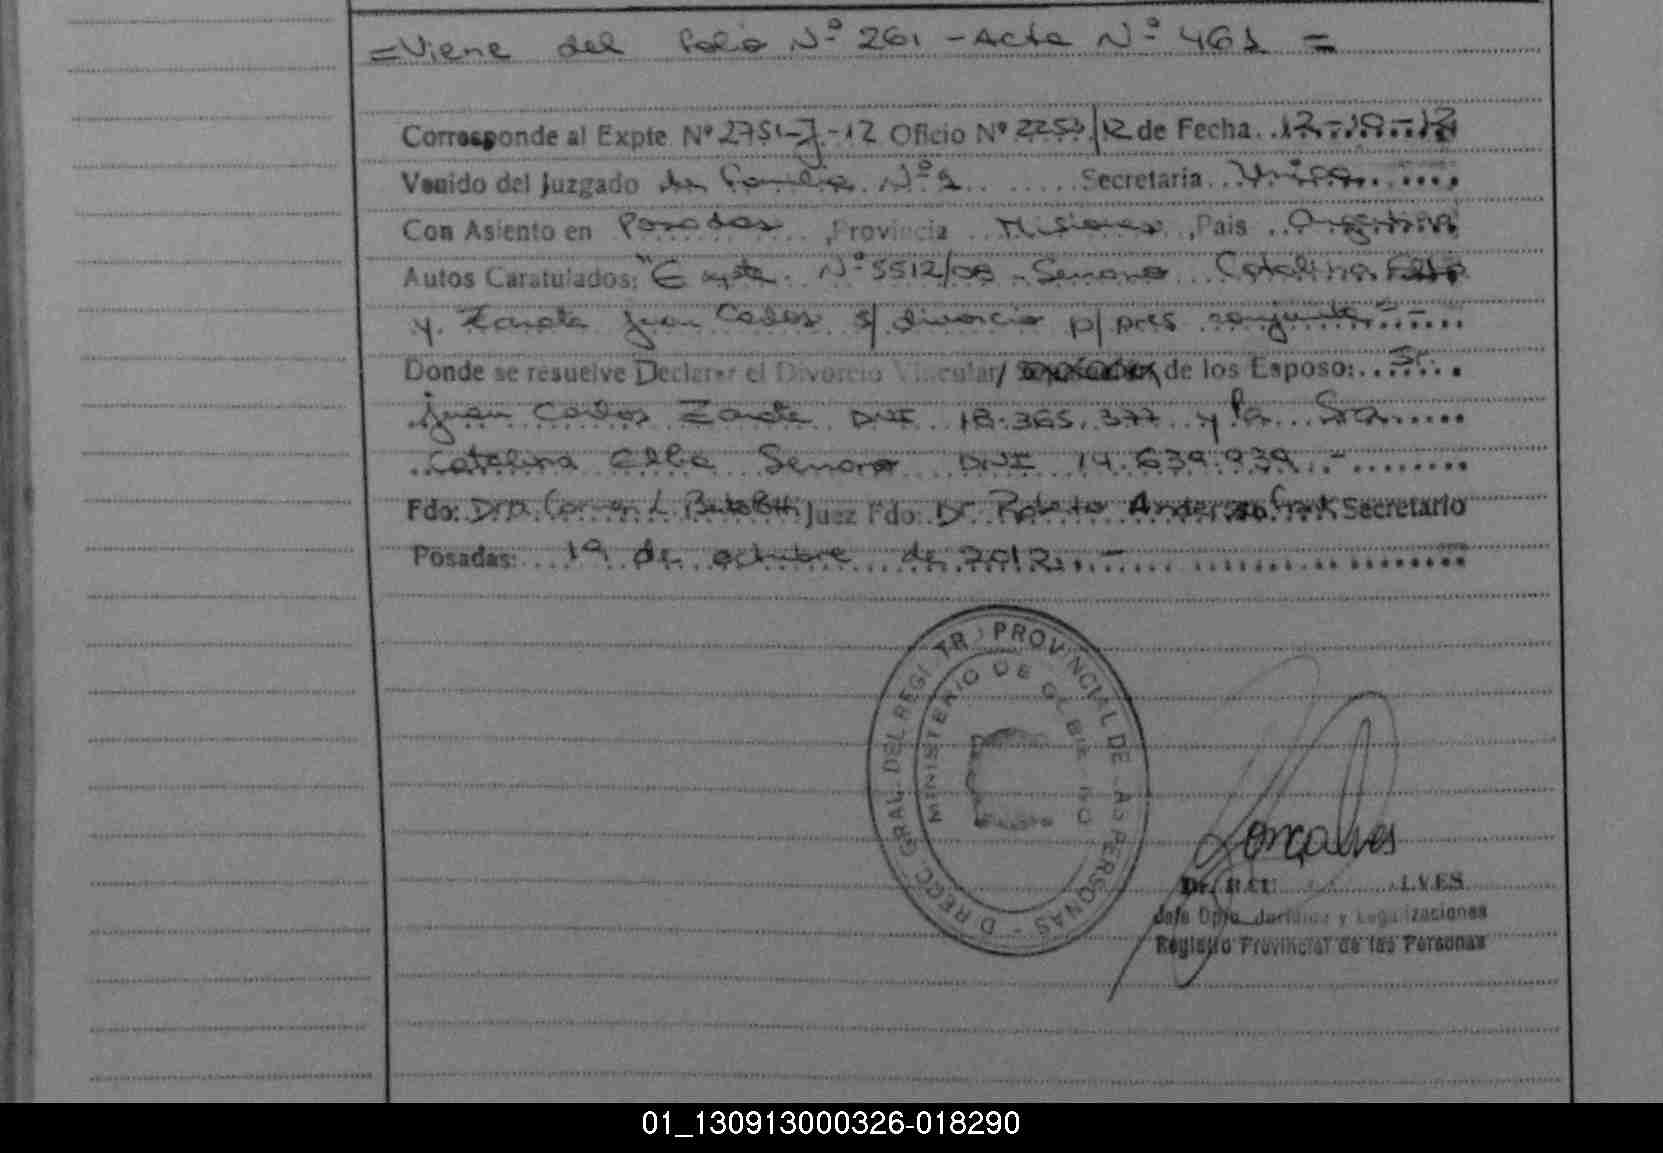 = Viene del folio Nº 261 - Acta Nº 461 =
Corresponde al Expte. Nº 2751-J-12 Oficio Nº 2253/12 de Fecha 12-10-12
Venido del Juzgado de Familia Nº 2 Secretaria Unica
Con Asiento en Posadas, Provincia Misiones, Pais Argentina
Autos Caratulados: "Expte. Nº 5512/08 - Serrano Catalina Elba
y Zarate Juan Carlos s/ divorcio p/ pres conjunta" -
Donde se resuelve Declarar el Divorcio Vincular/ de los Esposo: Sr.
Juan Carlos Zarate DNI 18.365.377 y la Sra
Catalina Elba Serrano DNI 14.639.939.-
Fdo: Dra. Carmen L. Juez Fdo: Dr. Roberto Anderson Frank Secretario
Posadas: 19 de octubre de 2012.-
DIRECC. GRAL. DEL REGISTR PROVINCIAL DE LAS PERSONAS
MINISTERIO DE GOBIERNO
Gonçalves
Dr. RAU LVES
Jefe Dpto. Jurídico y Legalizaciones
Registro Provincial de las Personas
01_130913000326-018290